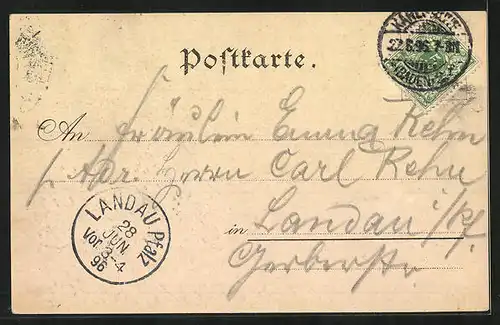 KARLSRUHE
22.6.96. 7-8N
(BADEN)
Postkarte.
An Fräulein Emma Rehn
p. Adr. Herrn Carl Rehn
in Landau i/Pf.
Gerberstr.
LANDAU Pfalz
28
JUN.
Vor. 3-4
96